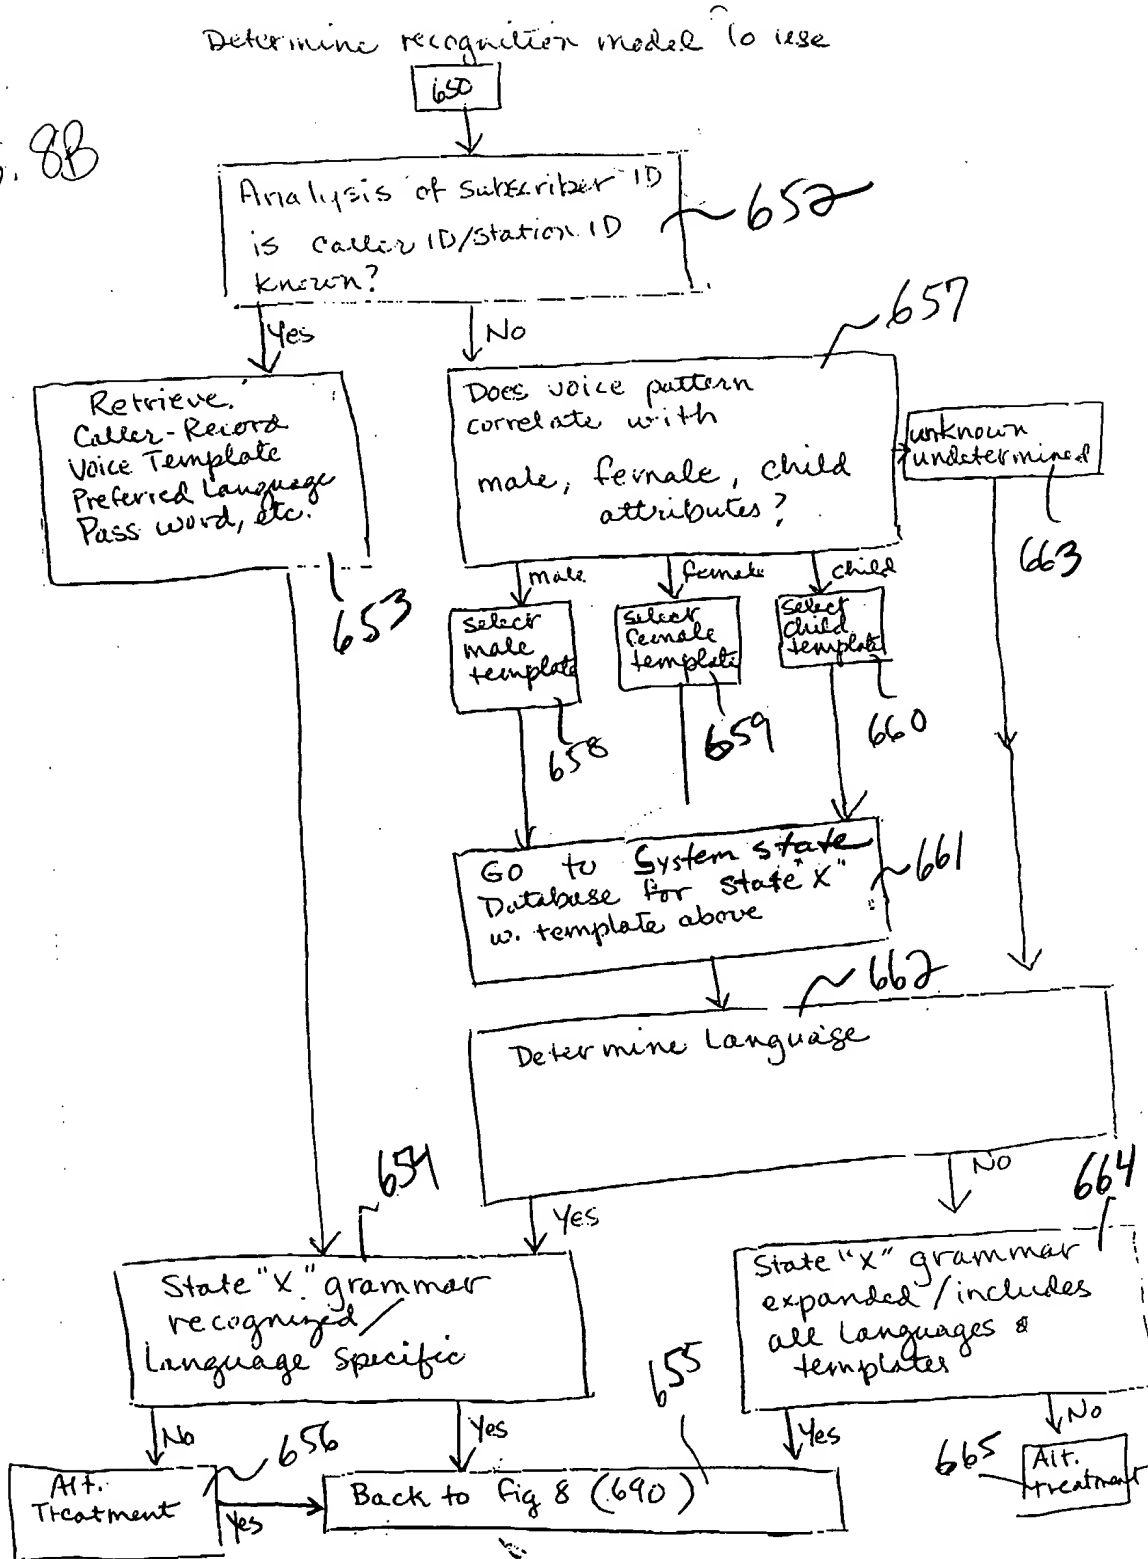 Determine recognition model to use
650
. 8B
Analysis of subscriber ID
is caller ID/Station ID
known?
652
Yes
No
657
Retrieve
Caller-Record
Voice Template
Preferred Language
Pass word, etc.
653
Does voice pattern
correlate with
male, female, child
attributes?
unknown
undetermined
663
male
female
child
select
male
template
select
female
template
select
child
template
658
659
660
GO to System state
Database for State "X"
w. template above
661
662
Determine Language
654
Yes
No
664
State "X" grammar
recognized/
Language specific
State "X" grammar
expanded/includes
all languages &
templates
655
No
Yes
Yes
No
656
Alt.
Treatment
Yes
Back to fig 8 (690)
665
Alt.
treatment